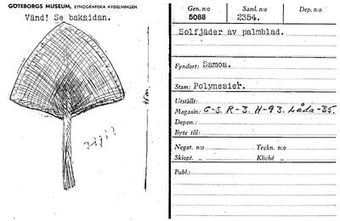 GÖTEBORGS MUSEUM, ETNOGRAFISKA AVDELNINGEN
Vänd! Se baksidan.
Gen. n:o
5088
Saml. n:o
2354.
Dep. n:o
Solfjäder av palmblad.
Fyndort: Samoa.
Stam: Polynesier.
Utställt:
Magasin: C-S. R-3. H-93. Låda-35.
Depon.:
Byte till:
Negat. n:o
Teckn. n:o
Skiopt. „
Kliché „
Publ.: